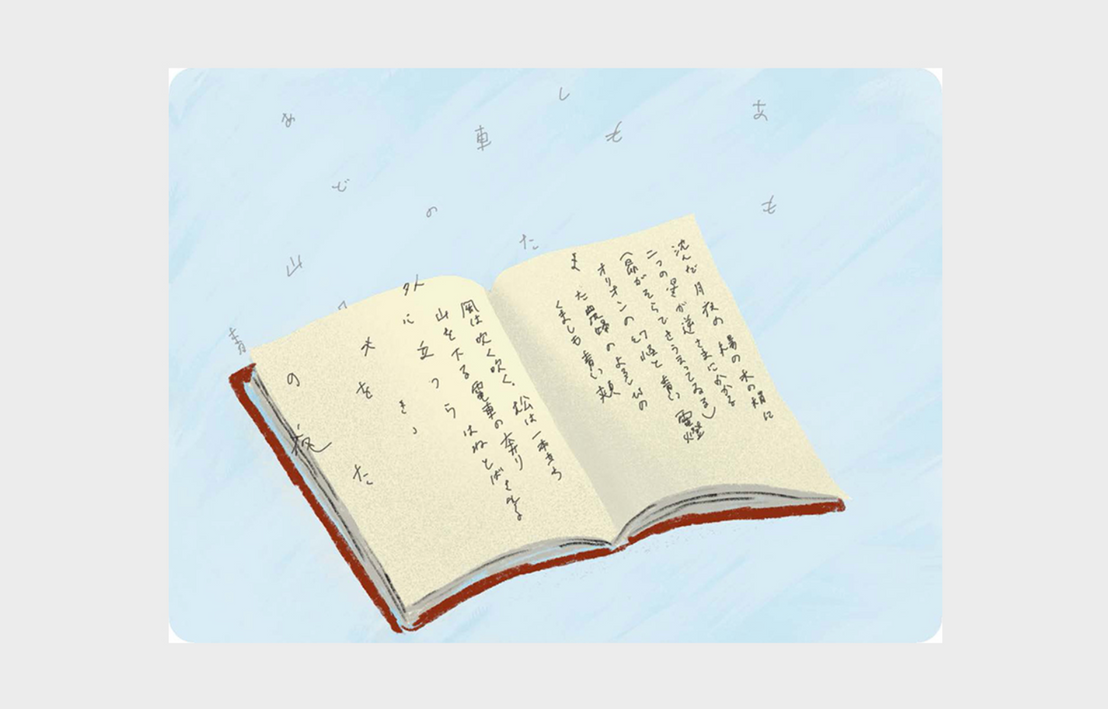 沈んだ月夜の楊の木の梢に
二つの星が逆さまにかかる
(昴がそらでさう云つてゐる)
オリオンの幻怪と青い電燈
また農婦のよろこびの
くましも青い頬
風は吹く吹く、松は一本立ち
山を下る電車の奔り
外に立つらはねとばされる
き
夫をた
の夜
あ
も
し
も
車
た
の
め
で
山